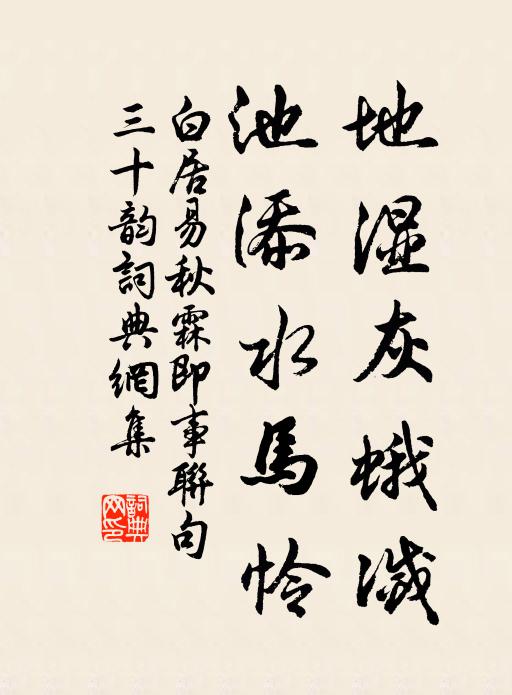 地湿灰蛾滅
池添水馬怜
白居易秋霖即事聯句
三十韵詞典網集
詞典
网印